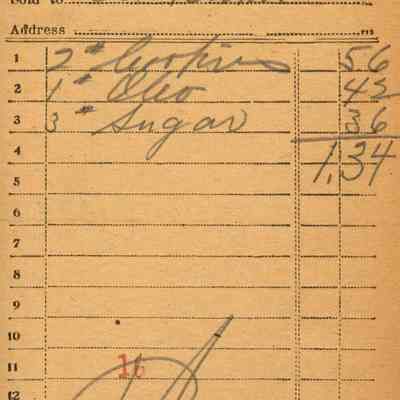 Sold to
Address
1 2# Cookies 56
2 1# Oleo 42
3 3# Sugar 36
4 1.34
5
6
7
8
9
10
11 16
12